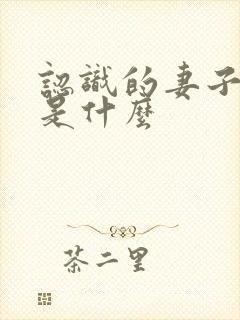 認識的妻子
是什麼
茶二里